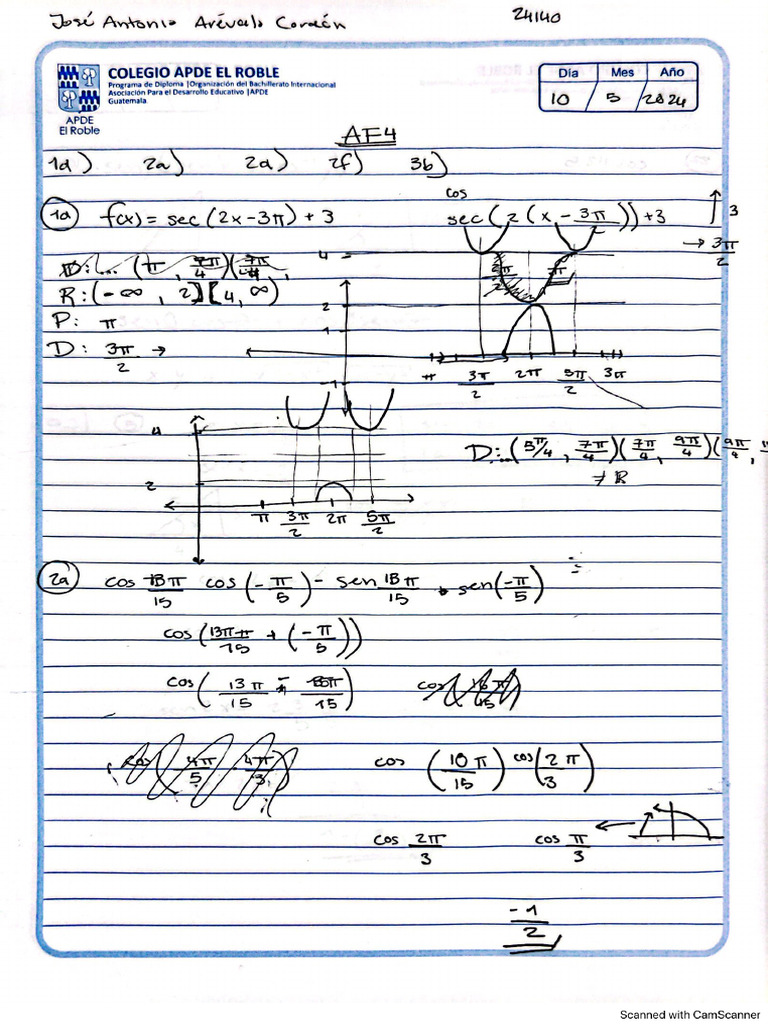 José Antonio Arévalo Cordón 24140
COLEGIO APDE EL ROBLE
Programa de Diploma |Organización del Bachillerato Internacional
Asociación Para el Desarrollo Educativo |APDE
Guatemala
APDE
El Roble
Día Mes Año
10 / 5 / 2024
AF4
1a) 2a) 2d) 2f) 3b)
1a f(x) = sec(2x-3π) + 3
cos
sec(2(x - 3π/2)) + 3
↑ 3
→ 3π/2
R: (-∞, 2] [4, ∞)
P: π
D: 3π/2 →
4
2
1
-1
π 3π/2 2π 5π/2 3π
D: ...(5π/4, 7π/4)(7π/4, 9π/4)(9π/4,
≠ ℝ
4
2
π 3π/2 2π 5π/2
2a cos 13π/15 cos(-π/5) - sen 13π/15 · sen(-π/5)
cos(13π/15 + (-π/5))
cos(13π/15 -
cos (10π/15) cos(2π/3)
cos 2π/3 cos π/3 ←
-1/2
Scanned with CamScanner